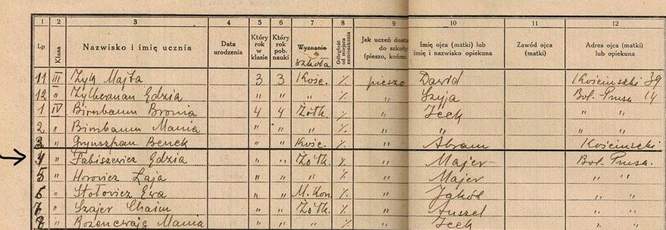 1 2 3 4 5 6 7 8 9 10 11 12
Lp Klasa Nazwisko i imię ucznia Data urodzenia Który rok w klasie Który rok pob. nauki Wyznanie szkoła Odległość od miejsca zamieszkania Jak uczeń dosta do szkoły (pieszo, końmi, Imię ojca (matki) lub imię i nazwisko opiekuna Zawód ojca (matki) lub opiekuna Adres ojca (matki) lub opiekuna
11 III Zyk Majta 3 3 Kośc. pieszo Dawid Kościuszki 39
12 " Zylberman Gdzia " " " " Szyja Bol. Prusa 14
1 IV Birnbaum Bronia 4 4 Żółk. " Icek " "
2 " Birnbaum Mania " " " " " " "
3 " Grynszpan Benek " " Kośc. " Abram Kościuszki
4 " Fabisiewicz Gdzia " " Żółk. " Majer Bol. Prusa
5 " Horowicz Łaja " " " " Majer " "
6 " Stołowicz Ewa " " M. Kon. " Jakób " "
7 " Szajer Chaim " " Żółk. " " "
8 " Mania " " " " Icek " "